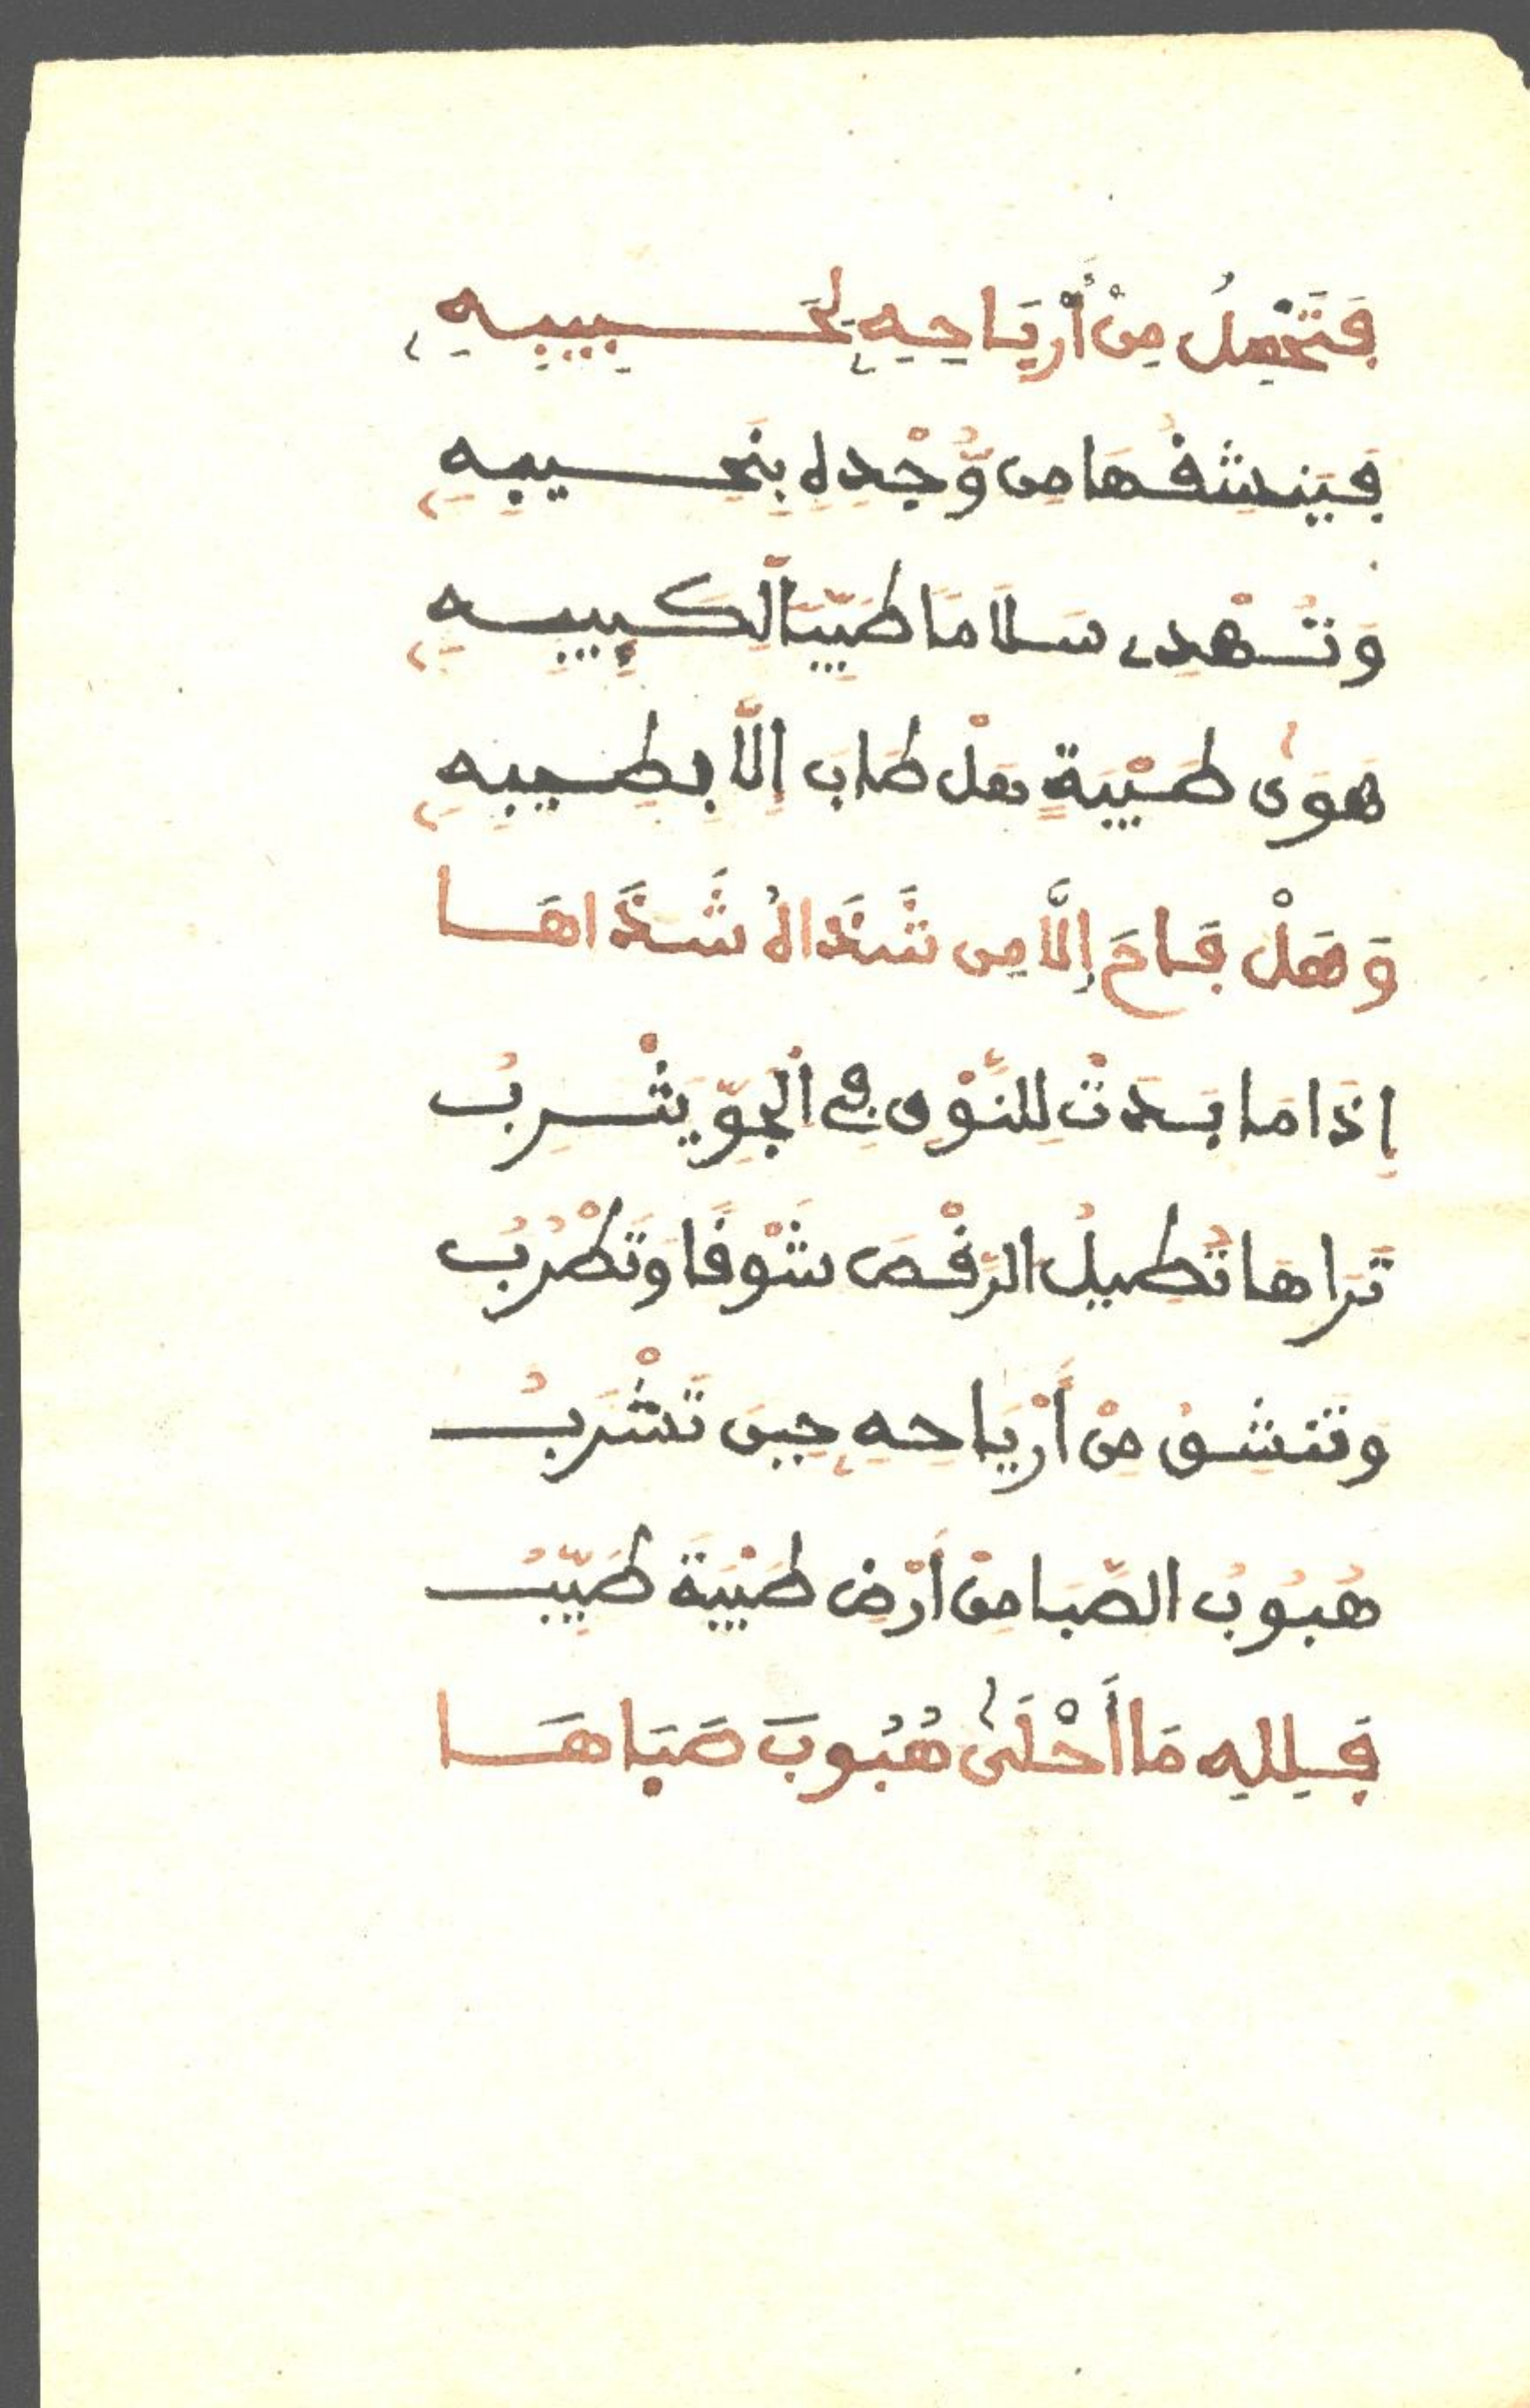 فَتَحْمِلُ مِنْ أَرْيَاحِهِ لِحَبِيبِهِ
فَيَنشِقُهَا مِن وَّجْدِهِ بِنَحِيبِهِ
وَتُهْدِى سَلَامًا طَيِّبًا لِّكَئِيبِهِ
هَوَىٰ طَيْبَةٍ هَلْ طَابَ إِلَّا بِطِيبِهِ
وَهَلْ فَاحَ إِلَّا مِن شَذَاهُ شَذَاهَا
إِذَا مَا بَدَتْ لِلنُّوقِ فِي الْجَوِّ يَثْرِبُ
تَرَاهَا تُطِيلُ الرَّقْصَ شَوْقًا وَتَطْرُبُ
وَتَنشِقُ مِنْ أَرْيَاحِهِ حِينَ تَشْرَبُ
هُبُوبُ الصَّبَا مِنْ أَرْضِ طَيْبَةَ طَيِّبُ
فَلِلهِ مَا أَحْلَىٰ هُبُوبَ صَبَاهَا